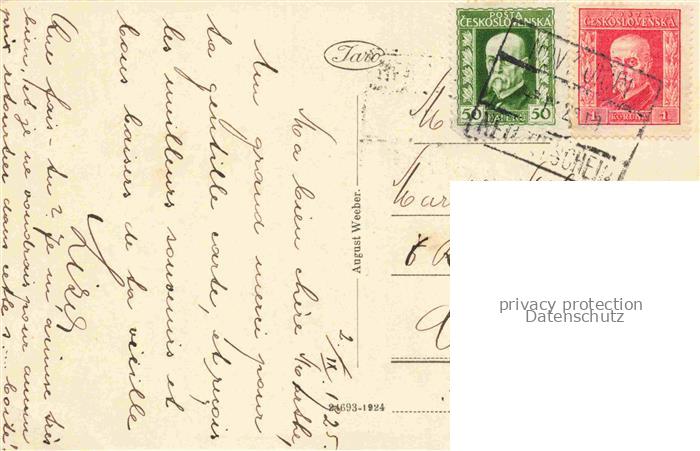 2/IX. 1925.
Ma bien chère Marthe,
Un grand merci pour
ta gentille carte, et reçois
les meilleurs souvenirs et
bons baisers de ta vieille
Que fais-tu? Je m'amuse très
bien, et je ne voudrais pour aucun
prix retourner dans cette s... boîte!
Taro
August Weeber.
24693-1924
POŠTA
ČESKOSLOVENSKÁ
50 HALÉŘŮ 50
POŠTA
ČESKOSLOVENSKÁ
1 KORUNA 1
M
Mar
privacy protection
Datenschutz